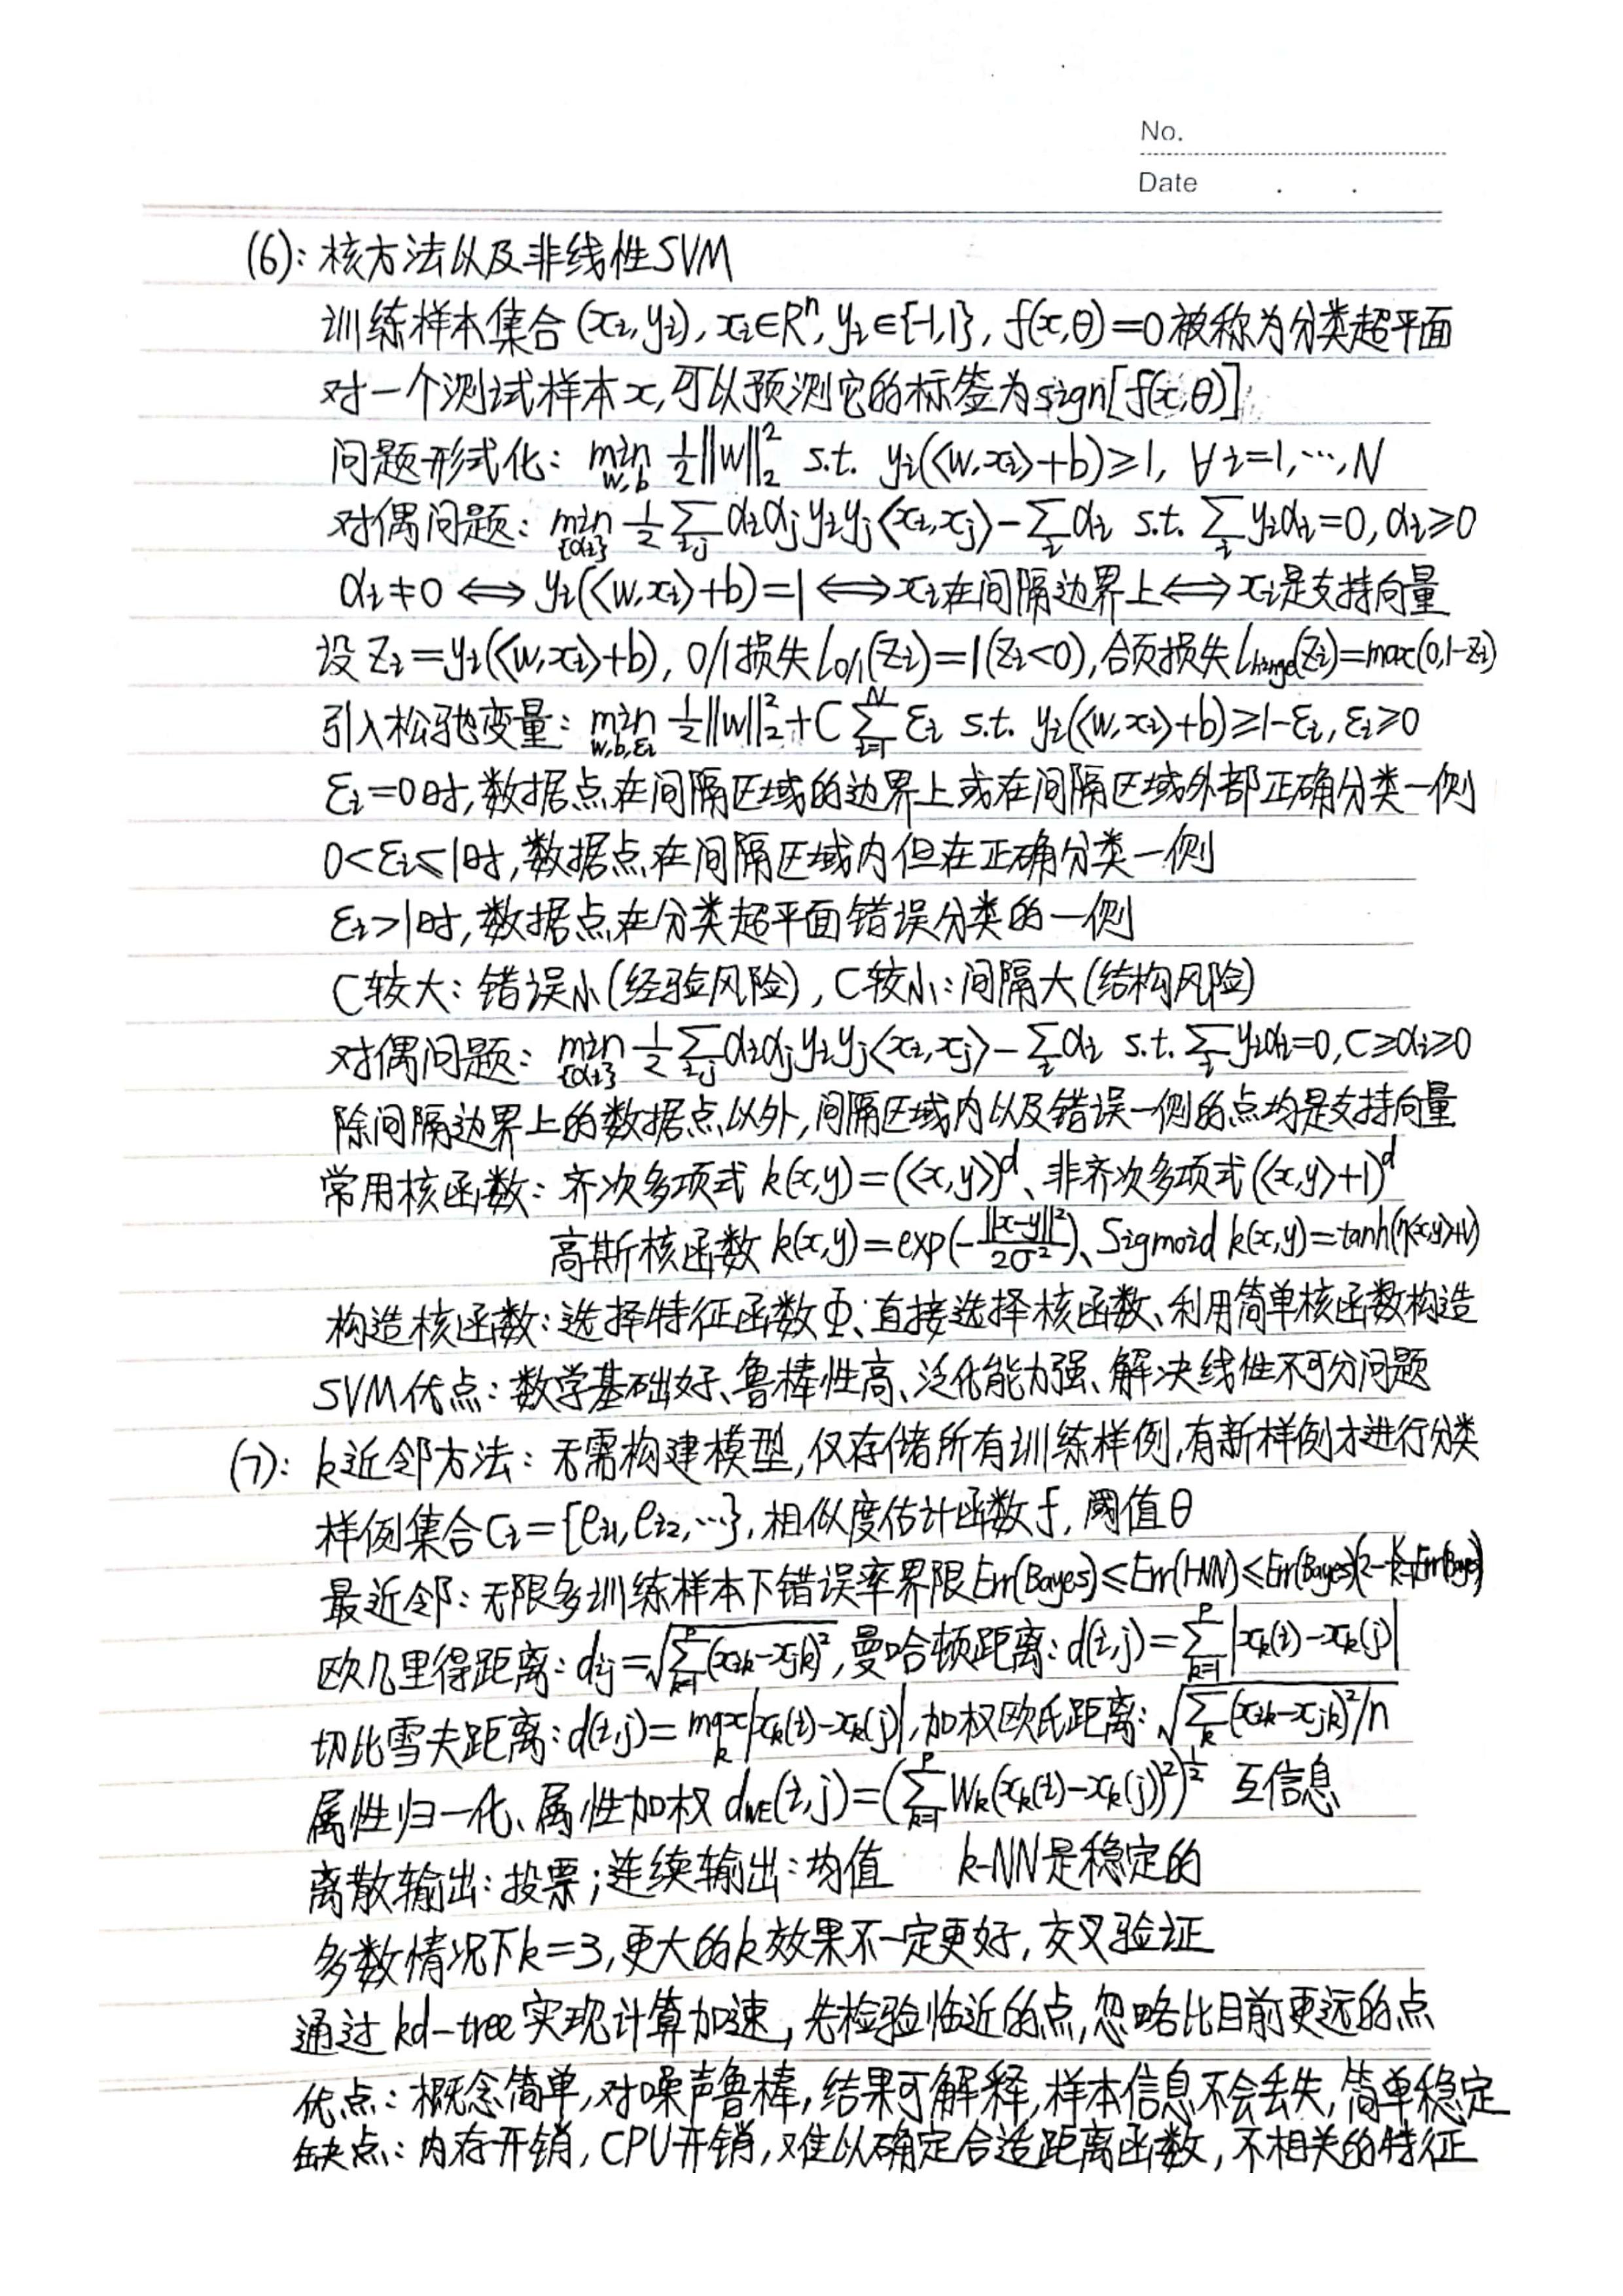 No.
Date . .
(6): 核方法以及非线性SVM
训练样本集合(xi,yi), xi∈Rⁿ, yi∈{-1,1}, f(x,θ)=0被称为分类超平面
对一个测试样本x,可以预测它的标签为sign[f(x,θ)]
问题形式化: min_{w,b} 1/2||w||₂² s.t. yi(<w,xi>+b)≥1, ∀i=1,…,N
对偶问题: min_{{αi}} 1/2 Σ_{i,j} αiαjyiyj<xi,xj>-Σ_i αi s.t. Σ_i yiαi=0, αi≥0
αi≠0 ⟺ yi(<w,xi>+b)=1 ⟺ xi在间隔边界上 ⟺ xi是支持向量
设zi=yi(<w,xi>+b), 0/1损失L0/1(zi)=1(zi<0),合页损失Lhinge(zi)=max(0,1-zi)
引入松驰变量: min_{w,b,εi} 1/2||w||₂²+C Σ_{i=1}^N εi s.t. yi(<w,xi>+b)≥1-εi, εi≥0
εi=0时,数据点在间隔区域的边界上或在间隔区域外部正确分类一侧
0<εi≤1时,数据点在间隔区域内但在正确分类一侧
εi>1时,数据点在分类超平面错误分类的一侧
C较大: 错误小(经验风险), C较小: 间隔大(结构风险)
对偶问题: min_{{αi}} 1/2 Σ_{i,j} αiαjyiyj<xi,xj>-Σ_i αi s.t. Σ_i yiαi=0, C≥αi≥0
除间隔边界上的数据点以外,间隔区域内以及错误一侧的点均是支持向量
常用核函数: 齐次多项式 k(x,y)=(<x,y>)^d、非齐次多项式(<x,y>+1)^d
高斯核函数 k(x,y)=exp(-||x-y||²/2σ²)、Sigmoid k(x,y)=tanh(η<x,y>+ν)
构造核函数: 选择特征函数Φ、直接选择核函数、利用简单核函数构造
SVM优点: 数学基础好、鲁棒性高、泛化能力强、解决线性不可分问题
(7): k近邻方法: 无需构建模型,仅存储所有训练样例,有新样例才进行分类
样例集合Ci={ei1,ei2,…}, 相似度估计函数f, 阈值θ
最近邻: 无限多训练样本下错误率界限Err(Bayes)≤Err(1-NN)≤Err(Bayes)(2-K/(K-1)Err(Bayes))
欧几里得距离: dij=√(Σ_{k=1}^p (xik-xjk)²), 曼哈顿距离: d(i,j)=Σ_{k=1}^p |xk(i)-xk(j)|
切比雪夫距离: d(i,j)=max_k|xk(i)-xk(j)|,加权欧氏距离: √(Σ_k (xik-xjk)²/n)
属性归一化、属性加权 dWE(i,j)=(Σ_{k=1}^p Wk(xk(i)-xk(j))²)^{1/2} 互信息
离散输出: 投票; 连续输出: 均值 k-NN是稳定的
多数情况下k=3,更大的k效果不一定更好, 交叉验证
通过kd-tree实现计算加速, 先检验临近的点,忽略比目前更远的点
优点: 概念简单,对噪声鲁棒,结果可解释,样本信息不会丢失,简单稳定
缺点: 内存开销, CPU开销,难以确定合适距离函数, 不相关的特征